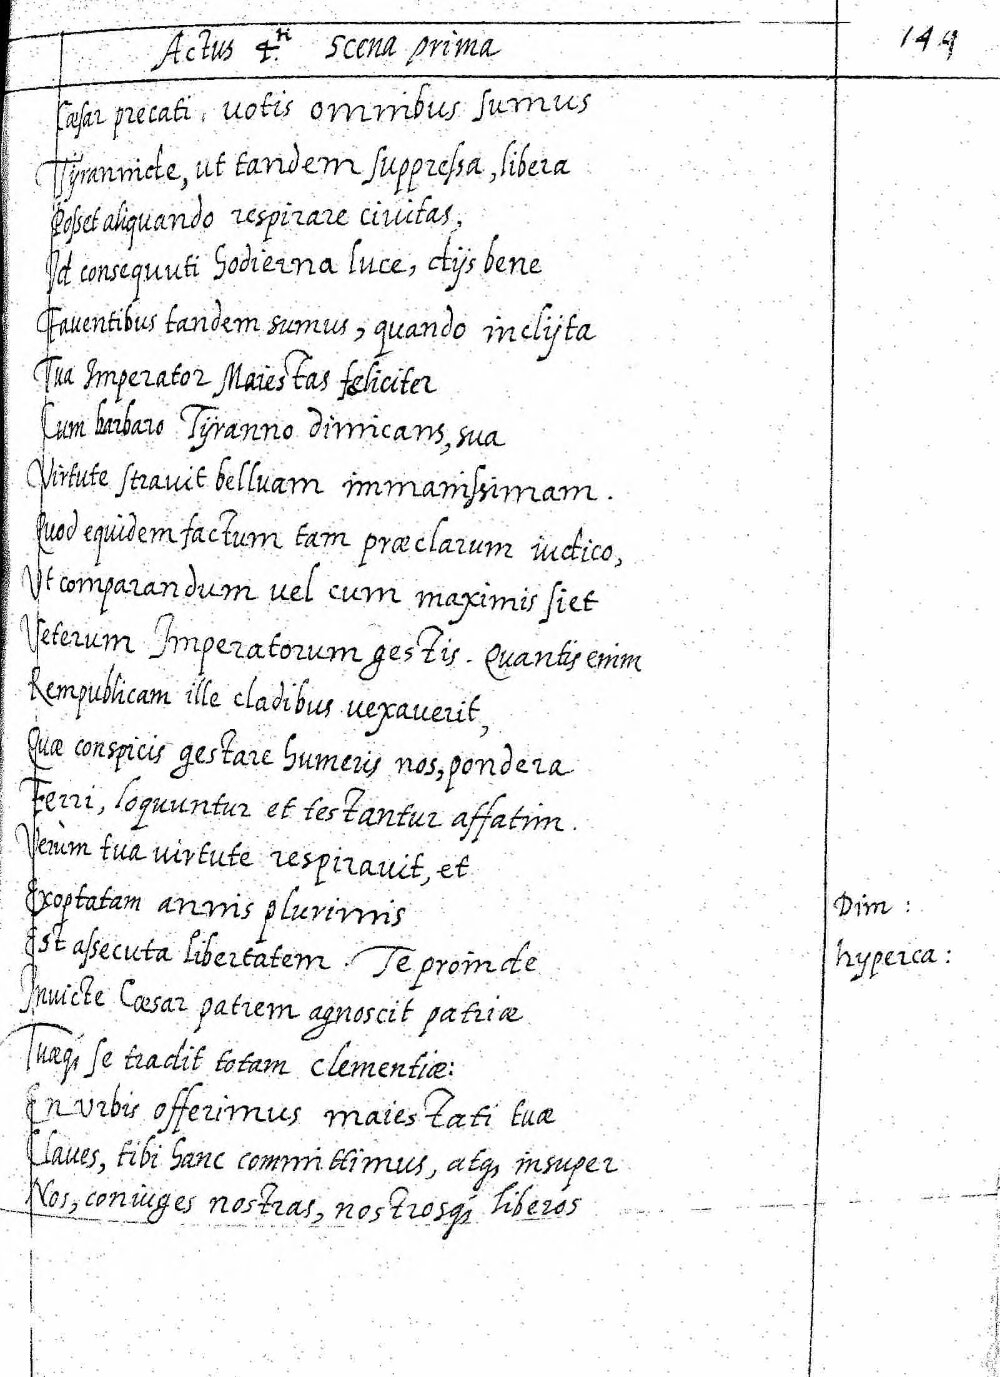 Actus 4.ti Scena prima
144
Cæsar precati, uotis omnibus sumus
Tÿrannide, ut tandem suppressa, libera
Posset aliquando respirare ciuitas,
Id consequuti hodierna luce, dijs bene
Fauentibus tandem sumus, quando inclijta
Tua Imperator Maiestas feliciter
Cum barbaro Tÿranno dimicans, sua
Virtute strauit belluam immanissimam.
Quod equidem factum tam præclarum iudico,
Vt comparandum uel cum maximis siet
Veterum Imperatorum gestis. Quantis enim
Rempublicam ille cladibus uexauerit,
Quæ conspicis gestare humeris nos, pondera
Ferri, loquuntur et testantur affatim.
Verùm tua uirtute respirauit, et
Exoptatam annis plurimis
Dim:
Est assecuta libertatem. Te proinde
hyperca:
Inuicte Cæsar patrem agnoscit patriæ
Tuæq, se tradit totam clementiæ:
En urbis offerimus maiestati tuæ
Claues, tibi hanc committimus, atq, insuper
Nos, coniuges nostras, nostrosq, liberos